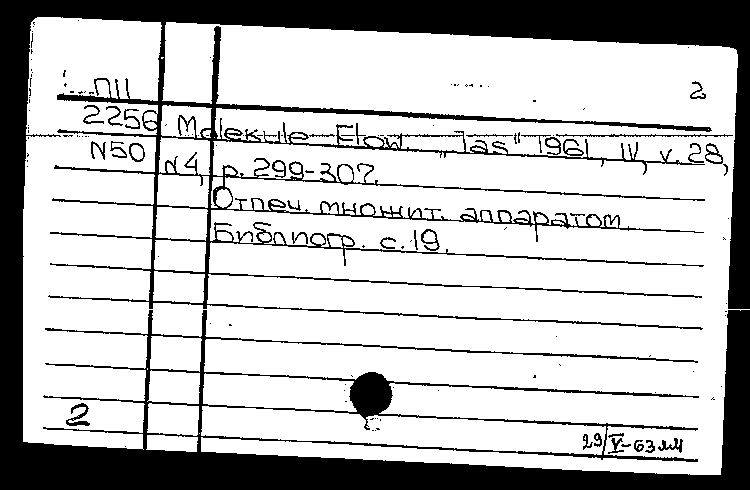 ПII 2
2256 Molekule Flow. „Jas" 1961, IV, v. 28,
N50 N4, p. 299-307.
Отпеч. множит. аппаратом.
Библиогр. с. 19.
2
29/V-63